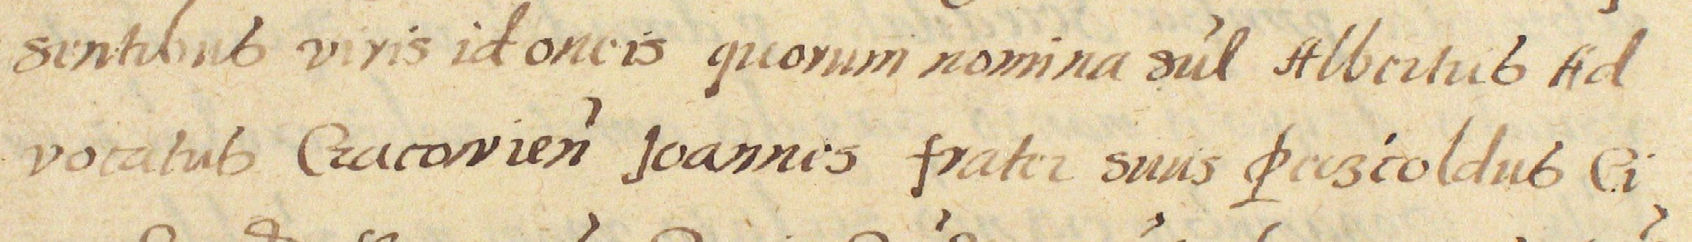 sentibus viris idoneis quorum nomina sūl Albertus Ad
vocatus Cracovien̄ Joannes frater suus Pezcoldus Ci